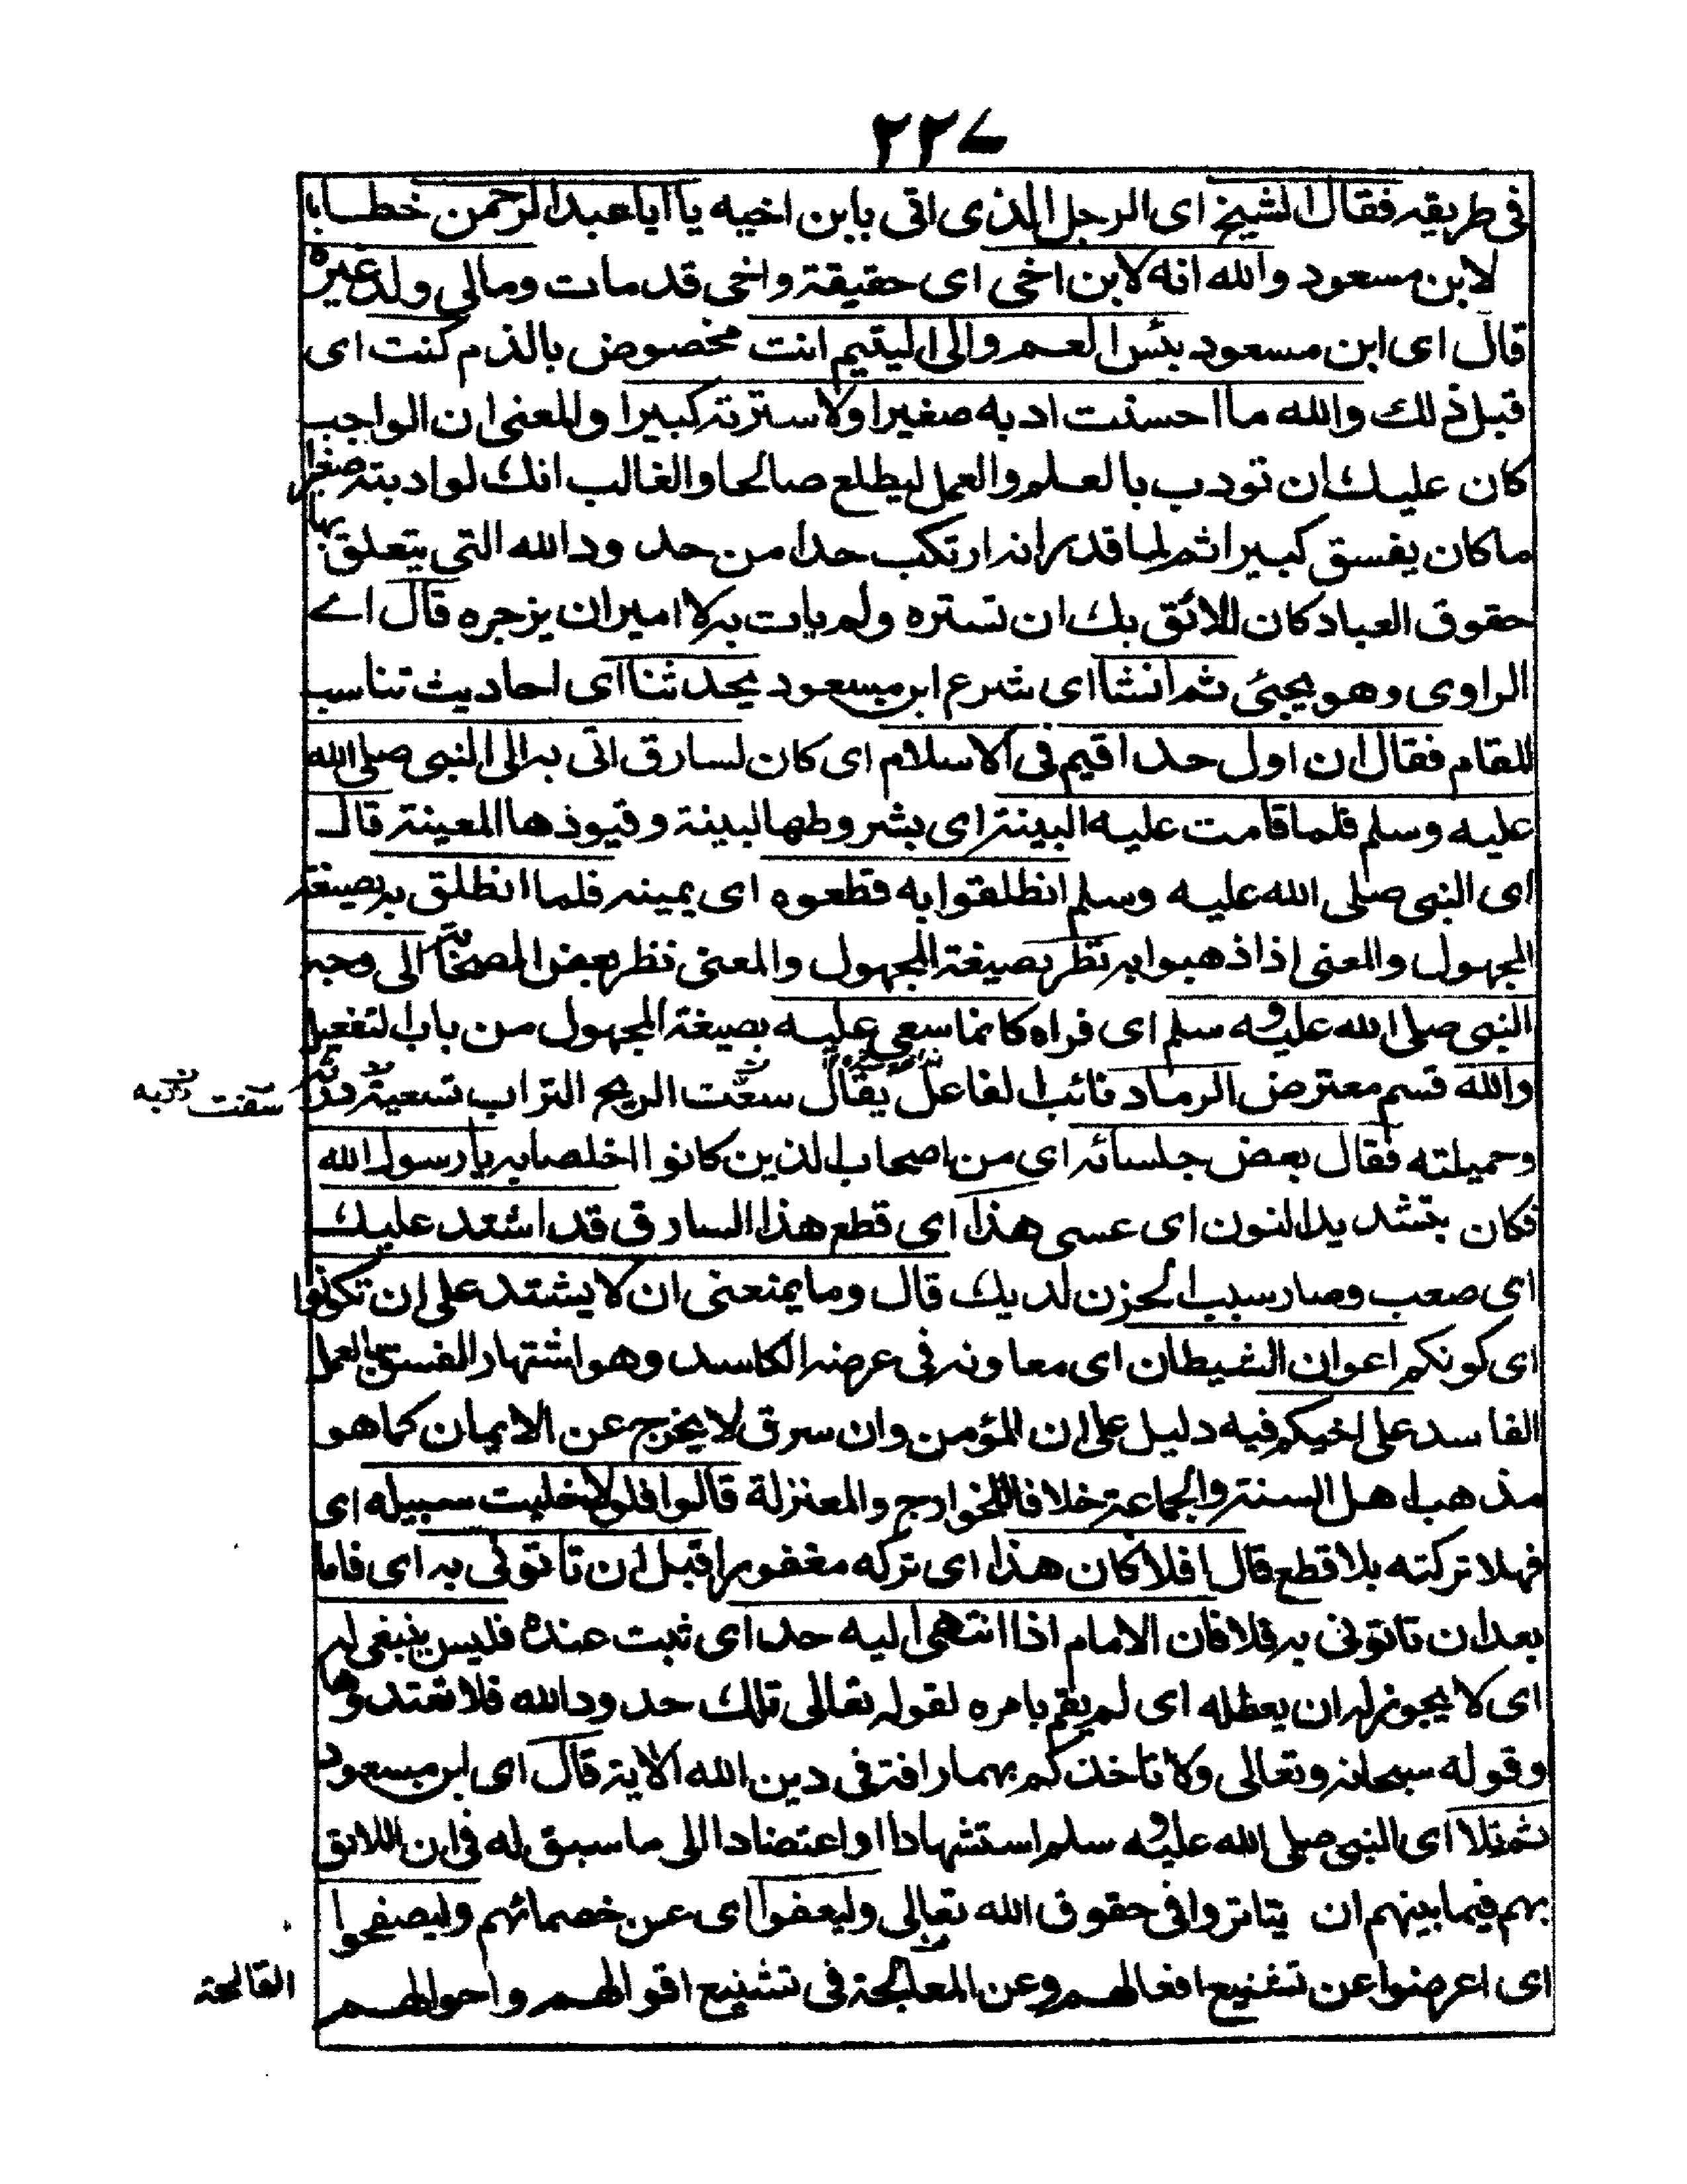 ٢٢٧
فى طريقه فقال الشيخ اى الرجل الذى اتى بابن اخيه يا ابا عبد الرحمن خطابا
لابن مسعود والله انه لابن اخى اى حقيقة واخى قد مات ومالى ولد غيره
قال اى ابن مسعود بئس العم والى اليتيم انت مخصوص بالذم كنت اى
قبل ذلك والله ما احسنت ادبه صغيرا ولا سترته كبيرا والمعنى ان الواجب
كان عليك ان تودب بالعلم والعمل ليطلع صالحا والغالب انك لو ادبته صغيرا
ما كان يفسق كبيرا ثم لما قدر انه ارتكب حدا من حدود الله التى يتعلق بها
حقوق العباد كان اللائق بك ان تستره ولم يات به لامير ان يزجره قال اے
الراوى وهو يحيى ثم انشا اى شرع ابن مسعود يحدثنا اى احاديث تناسب
للقام فقال ان اول حد اقيم فى الاسلام اى كان لسارق اتى به الى النبى صلى الله
عليه وسلم فلما قامت عليه البينة اى بشروطها لبينة وقيوذها المعينة قال
اى النبى صلى الله عليه وسلم انطلقوا به فقطعوه اى يمينه فلما انطلق به بصيغة
المجهول والمعنى اذا ذهبوا به نظر بصيغة المجهول والمعنى نظر بعض الصحابة الى وجه
النبى صلى الله عليه و سلم اى فراه كانما سعى عليه بصيغة المجهول من باب التفعيل
والله قسم معترض الرماد نائب الفاعل يقال سعت الريح التراب تسعية ذرته
سفت ذرته
وحميلته فقال بعض جلسائه اى من اصحاب الذين كانوا اخلصا به يا رسول الله
فكان بتشديد النون اى عسى هذا اى قطع هذا السارق قد اشتد عليك
اى صعب وصار سبب الحزن لديك قال وما يمنعنى ان لا يشتد على ان تكونوا
اى كونكم اعوان الشيطان اى معاونه فى عرضه الكاسد وهو اشتهار الفسق بالعمل
الفاسد على اخيكم فيه دليل على ان المؤمن وان سرق لا يخرج عن الايمان كما هو
مذهب اهل السنة والجماعة خلافا للخوارج والمعنزلة قالوا فلولا خليت سبيله اى
فهلا تركته بلا قطع قال افلا كان هذا اى تركه مغفورا قبل ان تاتونى به اى فاما
بعد ان تاتونى به فلا فان الامام اذا انتهى اليه حد اى ثبت عنده فليس ينبغى له
اى لا يجوز له ان يعطله اى لم يقم بامره لقوله تعالى تلك حدود الله فلا تعتدوها
وقوله سبحانه وتعالى ولا تاخذكم بهما رافة فى دين الله الاية قال اى ابن مسعود
ثم تلا اى النبى صلى الله عليه و سلم استشهادا او اعتضادا الى ما سبق له فى ان اللائق
بهم فيما بينهم ان يتاتروا فى حقوق الله تعالى وليعفوا اى عن خصمائهم وليصفحوا
اى اعرضوا عن تشنيع افعالهم وعن المعالجة فى تشنيع اقوالهم واحوالهم
القالحة